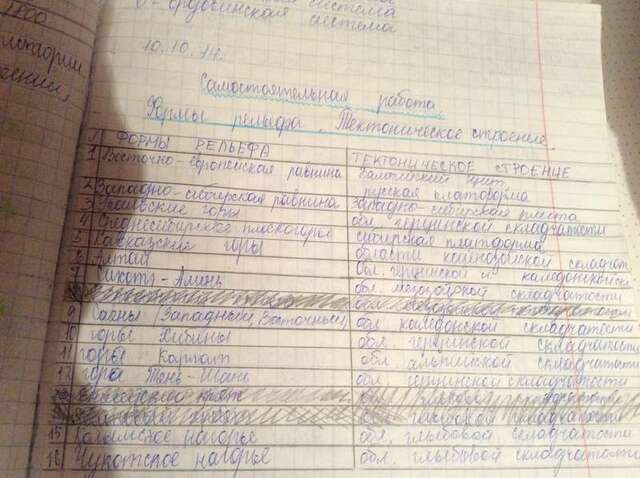 О - ордовикская система
10.10.14.
Самостоятельная работа.
Формы рельефа. Тектоническое строение.
ФОРМЫ РЕЛЬЕФА ТЕКТОНИЧЕСКОЕ СТРОЕНИЕ
1 Восточно-европейская равнина балтийский щит
русская платформа
2 Западно-сибирская равнина западно сибирская плита
3 Уральские горы обл. герцинской складчатости
4 Среднесибирское плоскогорье сибирская платформа
5 Кавказские горы области кайнозойской складчат.
6 Алтай обл. герцинской и каледонской
7 Сихотэ-Алинь обл. мезозойской складчатости
9 Саяны (Западный, Восточный) обл. каледонской складчатости
10 горы Хибины обл. герцинской складчатости
11 горы Карпаты обл. альпийской складчатости
12 горы Тянь-Шань обл. герцинской складчатости
15 нагорье обл. глыбовой складчатости
16 Чукотское нагорье обл. глыбовой складчатости